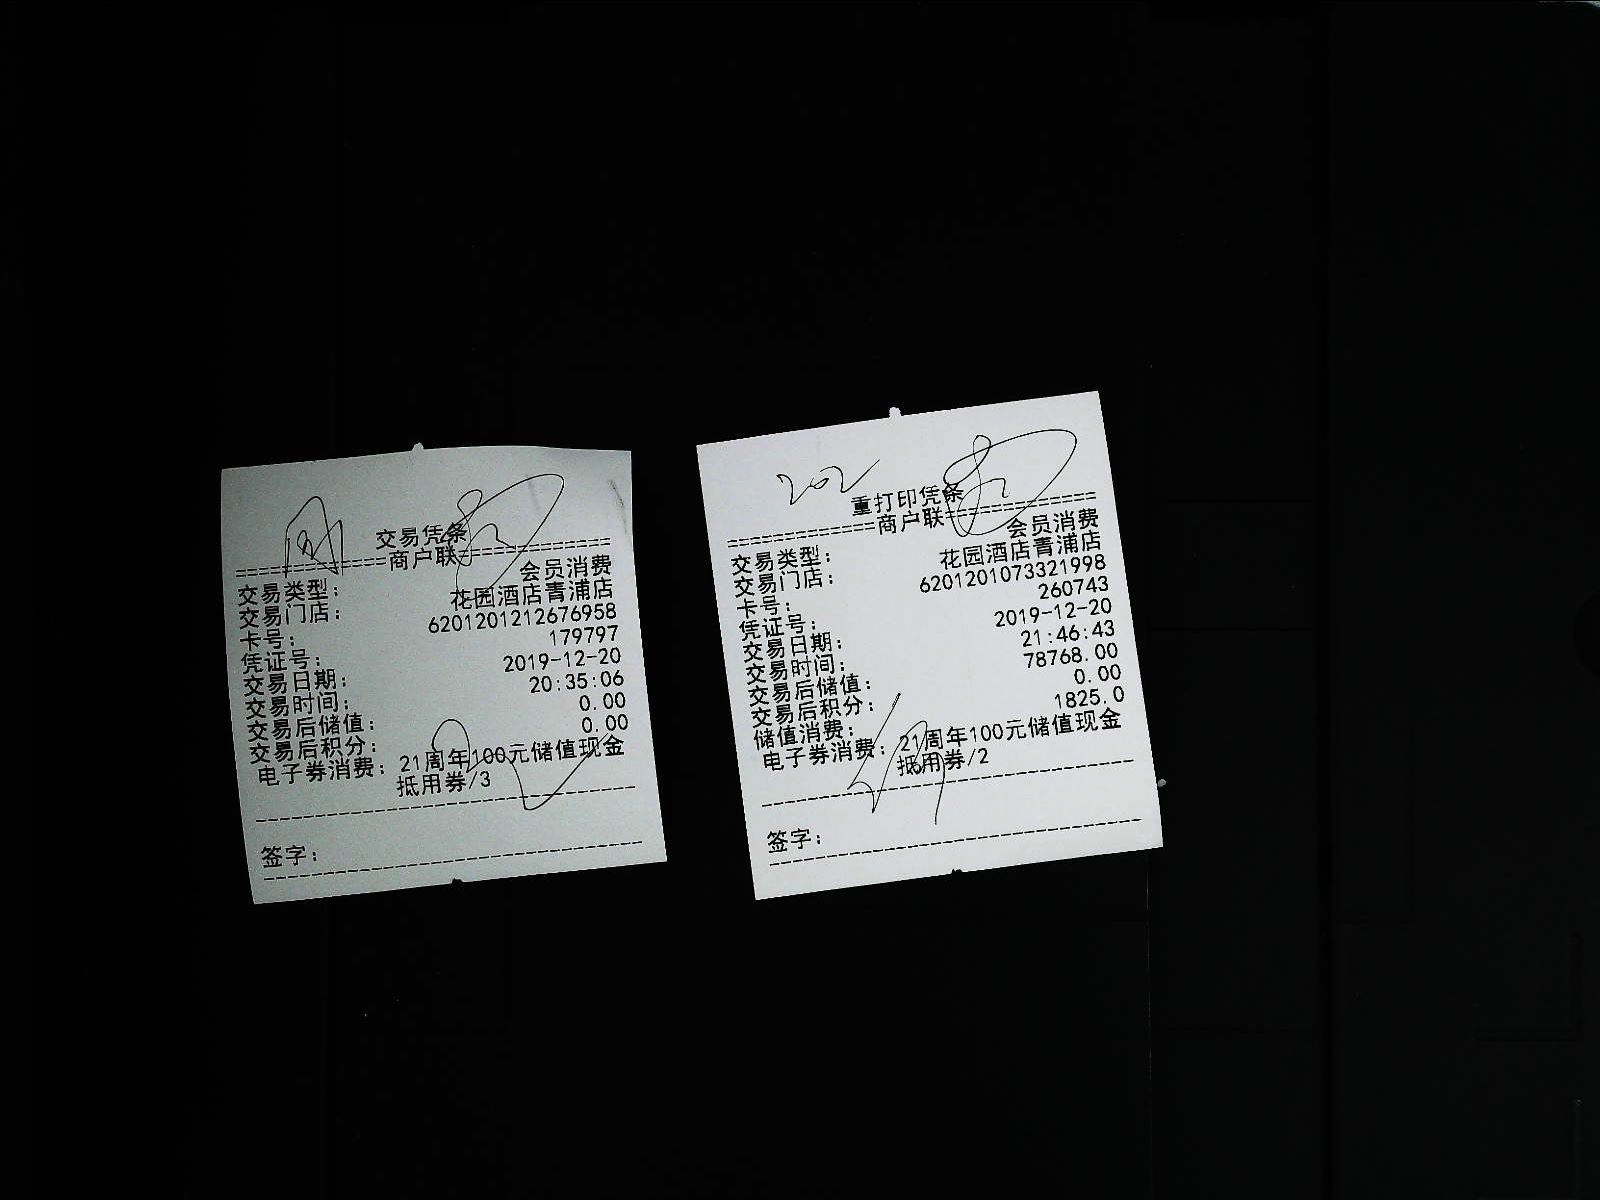 交易凭条
================商户联================
交易类型：
会员消费
交易门店：
花园酒店青浦店
卡号：
6201201212676958
凭证号：
179797
交易日期：
2019-12-20
交易时间：
20:35:06
交易后储值：
0.00
交易后积分：
0.00
电子券消费：
21周年100元储值现金
抵用券/3
签字：
202
重打印凭条
================商户联================
交易类型：
会员消费
交易门店：
花园酒店青浦店
卡号：
6201201073321998
凭证号：
260743
交易日期：
2019-12-20
交易时间：
21:46:43
交易后储值：
78768.00
交易后积分：
0.00
储值消费：
1825.0
电子券消费：
21周年100元储值现金
抵用券/2
签字：